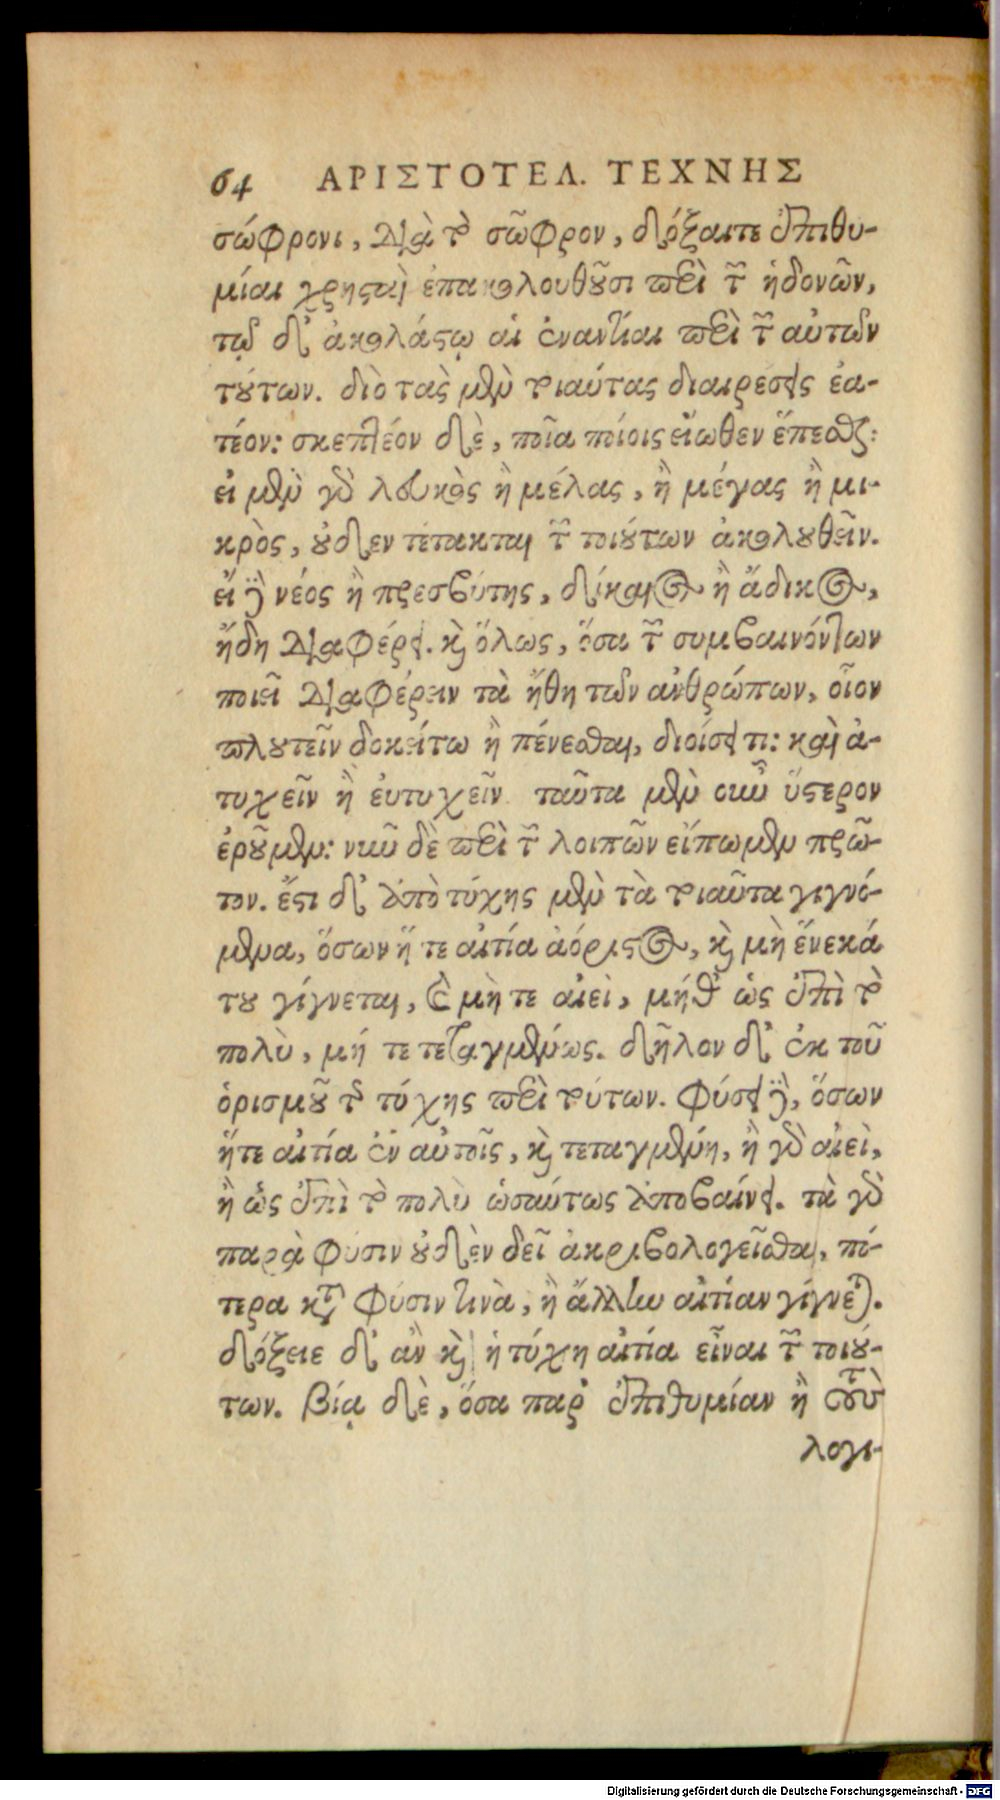 64 ΑΡΙΣΤΟΤΕΛ. ΤΕΧΝΗΣ
σώφρονι, διὰ τὸ σῶφρον, δόξαιτε ἐπιθυ-
μίαι χρησταὶ ἐπακολουθοῦσι περὶ τῶν ἡδονῶν,
τῷ δ' ἀκολάστῳ αἱ ἐναντίαι περὶ τῶν αὐτῶν
τούτων. διὸ τὰς μὲν τοιαύτας διαιρέσεις ἐα-
τέον: σκεπτέον δὲ, ποῖα ποίοις εἴωθεν ἕπεσθαι:
εἰ μὲν γὰρ λευκὸς ἢ μέλας, ἢ μέγας ἢ μι-
κρὸς, οὐδὲν τέτακται τῶν τοιούτων ἀκολουθεῖν.
εἰ δὲ νέος ἢ πρεσβύτης, δίκαιος ἢ ἄδικος,
ἤδη διαφέρει. καὶ ὅλως, ὅσα τῶν συμβαινόντων
ποιεῖ διαφέρειν τὰ ἤθη τῶν ἀνθρώπων, οἷον
πλουτεῖν δοκείτω ἢ πένεσθαι, διοίσει τι: καὶ ἀ-
τυχεῖν ἢ εὐτυχεῖν ταῦτα μὲν οὖν ὕστερον
ἐροῦμεν: νῦν δὲ περὶ τῶν λοιπῶν εἴπωμεν πρῶ-
τον. ἔστι δ' ἀπὸ τύχης μὲν τὰ τοιαῦτα γιγνό-
μενα, ὅσων ἥ τε αἰτία ἀόριστος, καὶ μὴ ἕνεκά
του γίγνεται, καὶ μὴ τε αἰεὶ, μήθ' ὡς ἐπὶ τὸ
πολὺ, μή τε τεταγμένως. δῆλον δ' ἐκ τοῦ
ὁρισμοῦ τῆς τύχης περὶ τούτων. φύσει δὲ, ὅσων
ἥτε αἰτία ἐν αὐτοῖς, καὶ τεταγμένη, ἢ γὰρ αἰεὶ,
ἢ ὡς ἐπὶ τὸ πολὺ ὡσαύτως ἀποβαίνει. τὰ γὰρ
παρὰ φύσιν οὐδὲν δεῖ ἀκριβολογεῖσθαι, πό-
τερα κατὰ φύσιν τινὰ, ἢ ἄλλην αἰτίαν γίγνεται.
δόξειε δ' ἂν καὶ ἡ τύχη αἰτία εἶναι τῶν τοιού-
των. βίᾳ δὲ, ὅσα παρ' ἐπιθυμίαν ἢ τοὺς
λογι-
Digitalisierung gefördert durch die Deutsche Forschungsgemeinschaft - DFG